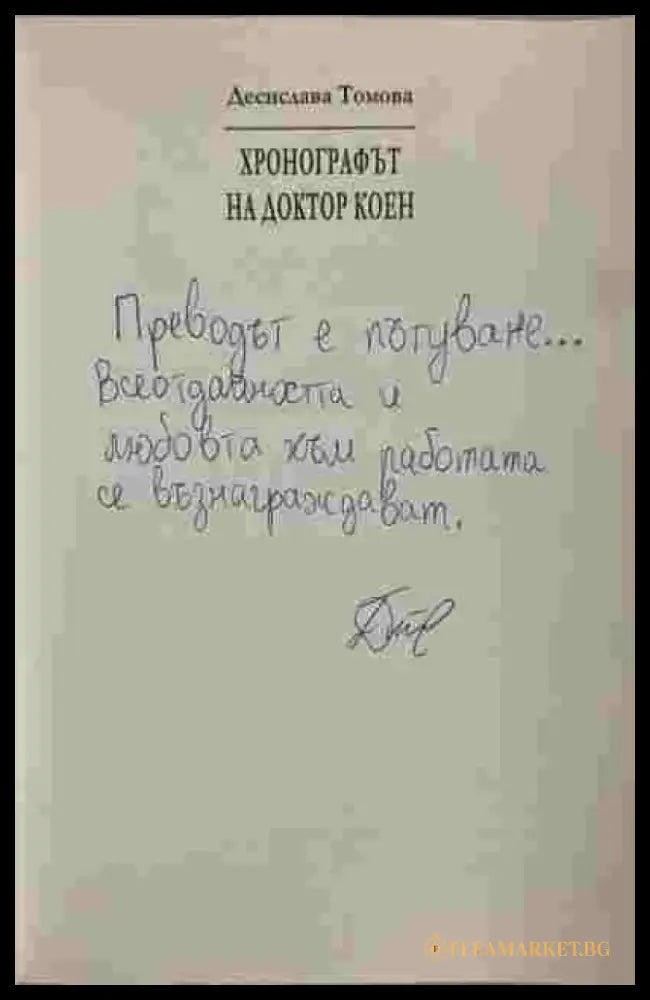 Десислава Томова
ХРОНОГРАФЪТ
НА ДОКТОР КОЕН
Преводът е пътуване...
Всеотдайността и
любовта към работата
се възнаграждават.
FLEAMARKET.BG